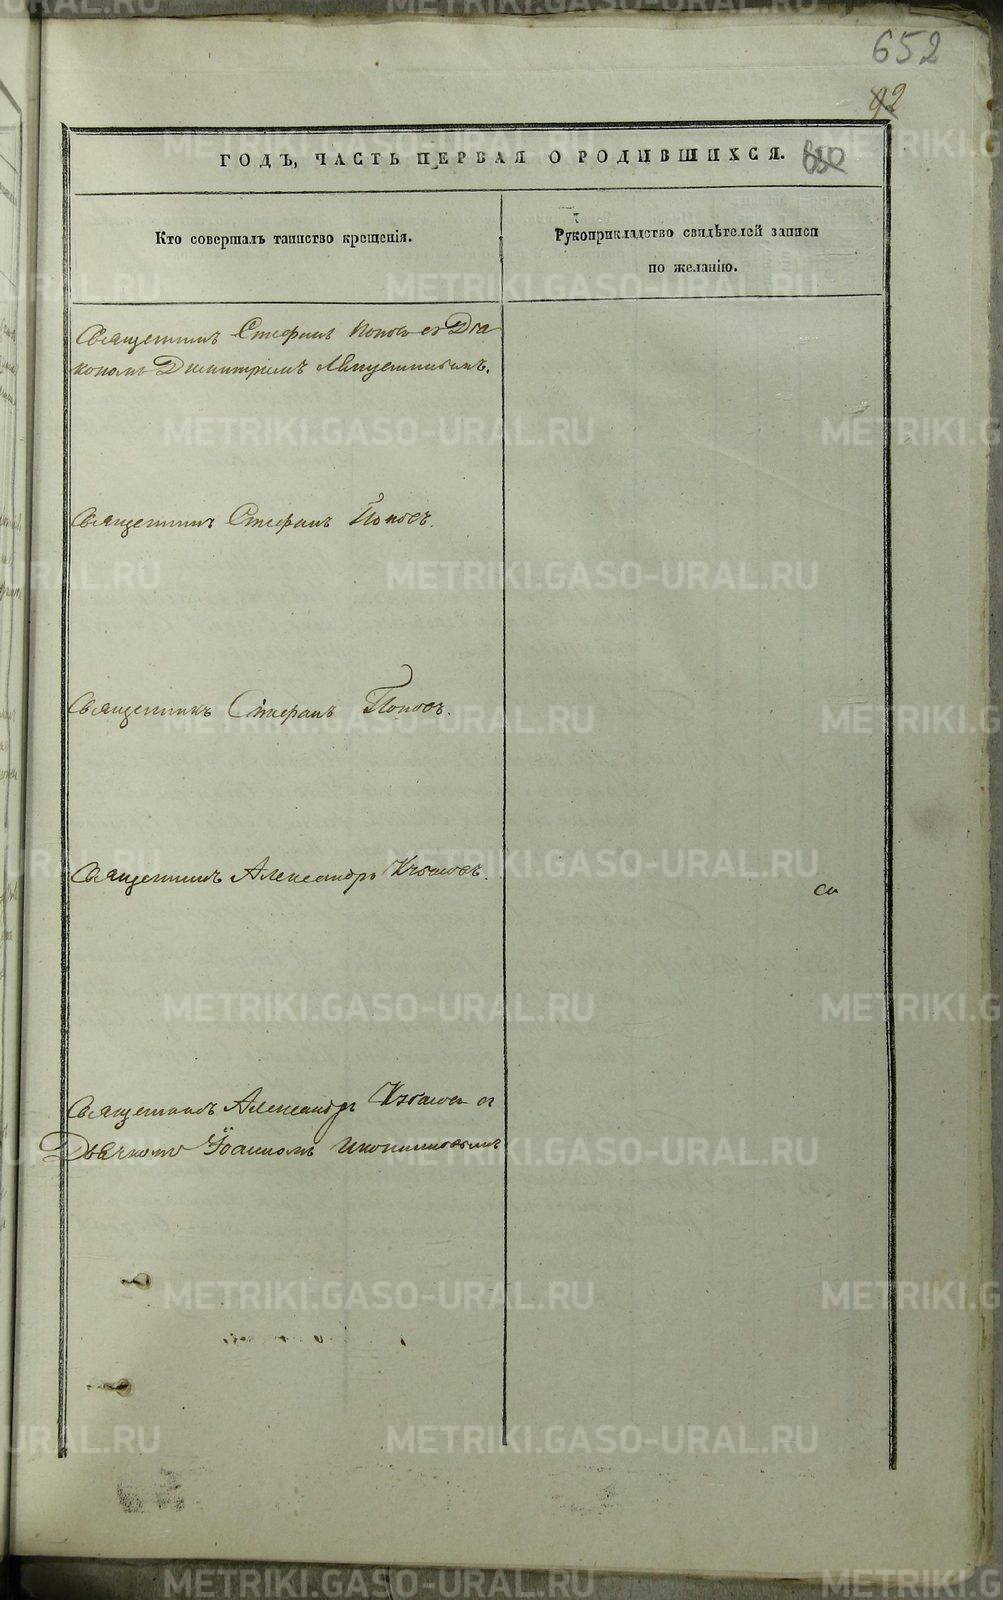 652
92
ГОДЪ, ЧАСТЬ ПЕРВАЯ О РОДИВШИХСЯ.
Кто совершалъ таинство крещенія.
Рукоприкладство свидѣтелей записи
по желанію.
Священникъ Стефанъ Поповъ съ Діа
кономъ Димитріемъ
Священникъ Стефанъ Поповъ.
Священникъ Стефанъ Поповъ.
Священникъ Александръ
Священникъ Александръ съ
Дьячкомъ Іоанномъ
METRIKI.GASO-URAL.RU